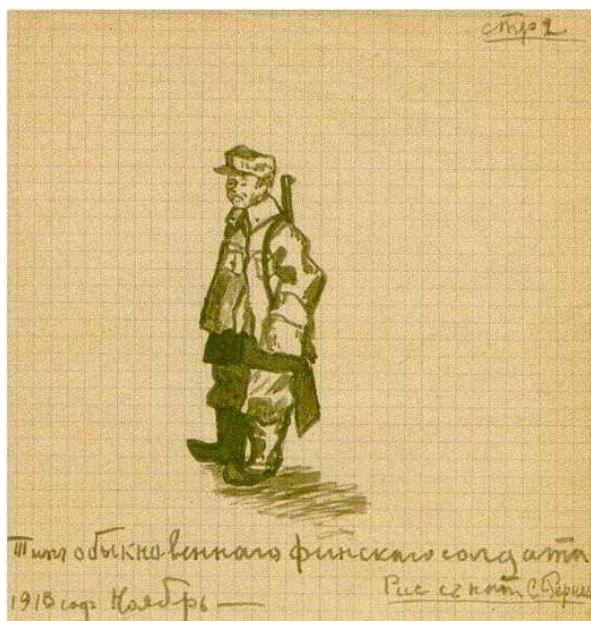 стр 1
Типъ обыкновеннаго финскаго солдата
1918 годъ Ноябрь —
Рис съ нат С.